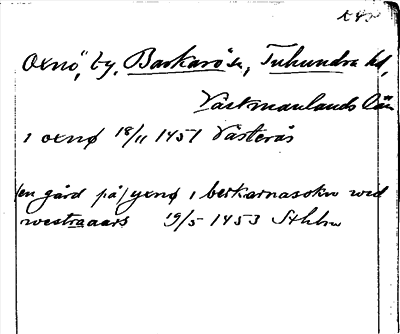 Oxnö, by, Barkarö sn, Tuhundra hd,
Västmanlands län
i oxnø 18/11 1451 Västerås
(en gård på) yxnø i berkarnasokn wid
westraaars 19/5 1453 Sthlm